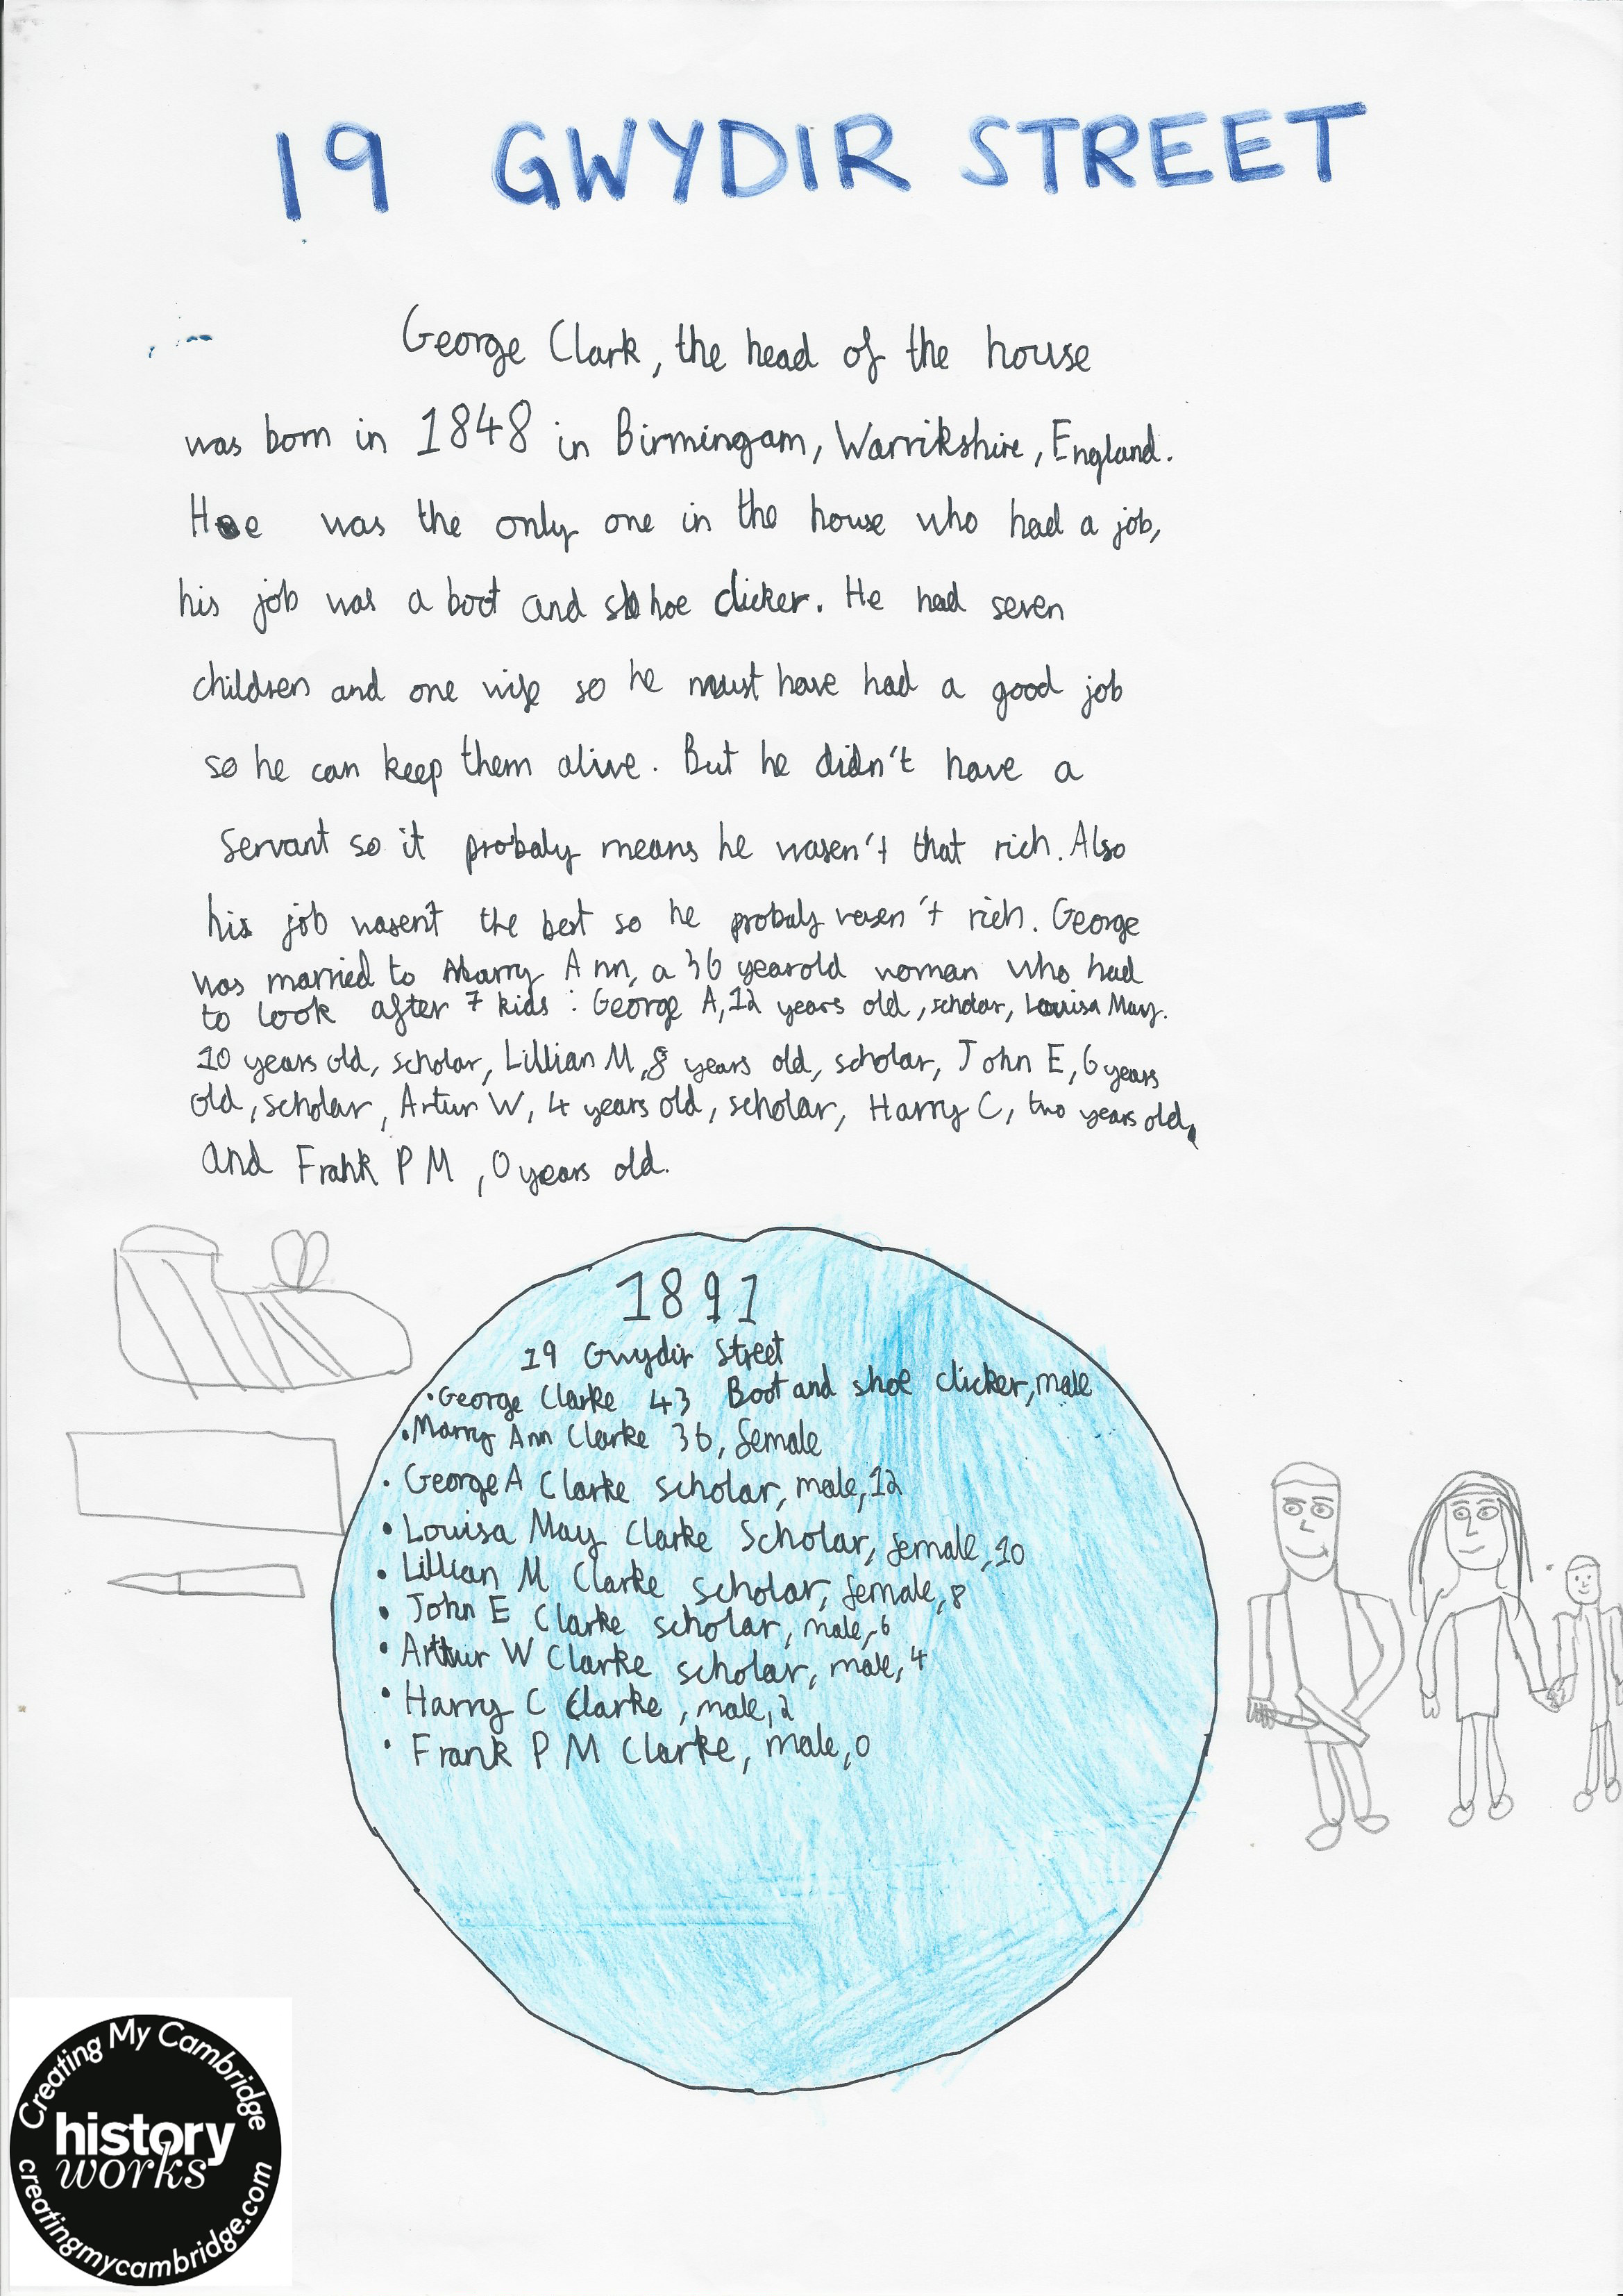 19 GWYDIR STREET
George Clark, the head of the house
was born in 1848 in Birmingam, Warrikshire, England.
He was the only one in the house who had a job,
his job was a boot and shoe clicker. He had seven
children and one wife so he must have had a good job
so he can keep them alive. But he didn't have a
servant so it probaly means he wasen't that rich. Also
his job wasen't the best so he probaly wasen't rich. George
was married to Marry Ann, a 36 year old woman who had
to look after 7 kids : George A, 12 years old, scholar, Louisa May.
10 years old, scholar, Lillian M, 8 years old, scholar, John E, 6 years
old, scholar, Artur W, 4 years old, scholar, Harry C, two years old,
and Frank P M, 0 years old.
1891
19 Gwydir Street
•George Clarke 43 Boot and shoe clicker, male
•Marry Ann Clarke 36, female
• George A Clarke scholar, male, 12
• Louisa May Clarke Scholar, female, 10
• Lillian M Clarke scholar, female, 8
• John E Clarke scholar, male, 6
• Arthur W Clarke scholar, male, 4
• Harry C Clarke, male, 2
• Frank P M Clarke, male, 0
Creating My Cambridge
history
works
creatingmycambridge.com